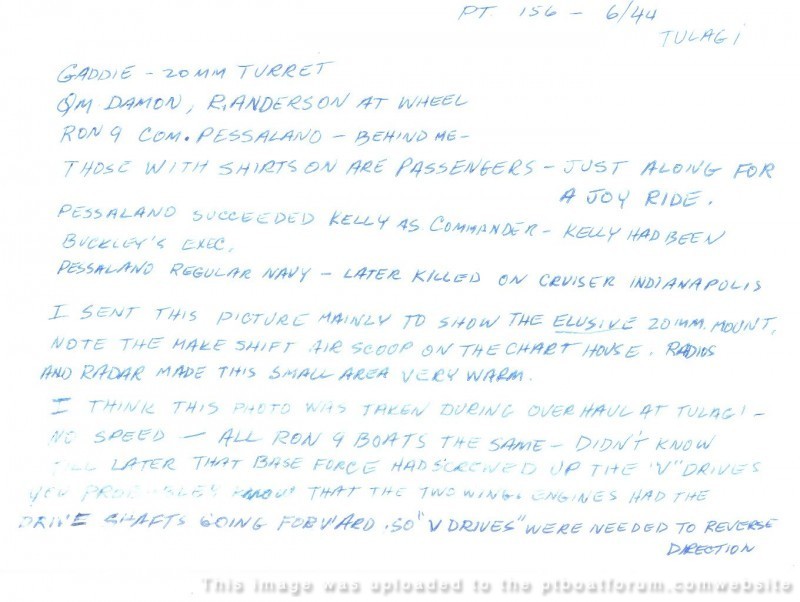 PT. 156 - 6/44
TULAGI
GADDIE - 20MM TURRET
QM DAMON, R. ANDERSON AT WHEEL
RON 9 COM. PESSALANO - BEHIND ME -
THOSE WITH SHIRTS ON ARE PASSENGERS - JUST ALONG FOR
A JOY RIDE.
PESSALAND SUCCEEDED KELLY AS COMMANDER - KELLY HAD BEEN
BUCKLEY'S EXEC.
PESSALANO REGULAR NAVY - LATER KILLED ON CRUISER INDIANAPOLIS
I SENT THIS PICTURE MAINLY TO SHOW THE ELUSIVE 20MM. MOUNT,
NOTE THE MAKE SHIFT AIR SCOOP ON THE CHART HOUSE. RADIOS
AND RADAR MADE THIS SMALL AREA VERY WARM.
I THINK THIS PHOTO WAS TAKEN DURING OVERHAUL AT TULAGI -
NO SPEED - ALL RON 9 BOATS THE SAME - DIDN'T KNOW
TILL LATER THAT BASE FORCE HAD SCREWED UP THE "V" DRIVES
YOU KNOW THAT THE TWO WING. ENGINES HAD THE
DRIVE SHAFTS GOING FORWARD. SO "V DRIVES" WERE NEEDED TO REVERSE
DIRECTION
This image was uploaded to the ptboatforum.comwebsite